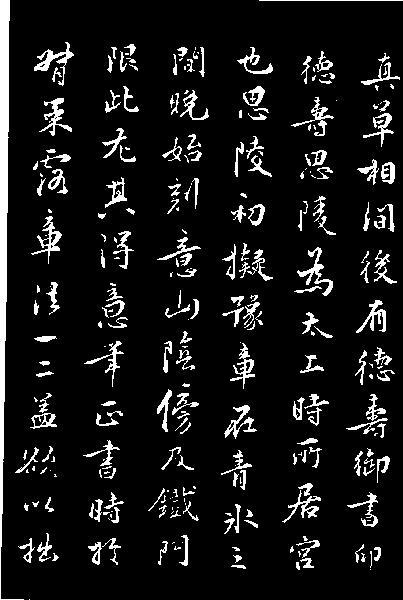 真草相間後有德壽御書印
德壽思陵為太上時所居宮
也思陵初擬豫章在青氷之
間晚始刻意山陰傍及鐵門
限此尤其得意筆正書時於
露章法一二蓋欲以拙